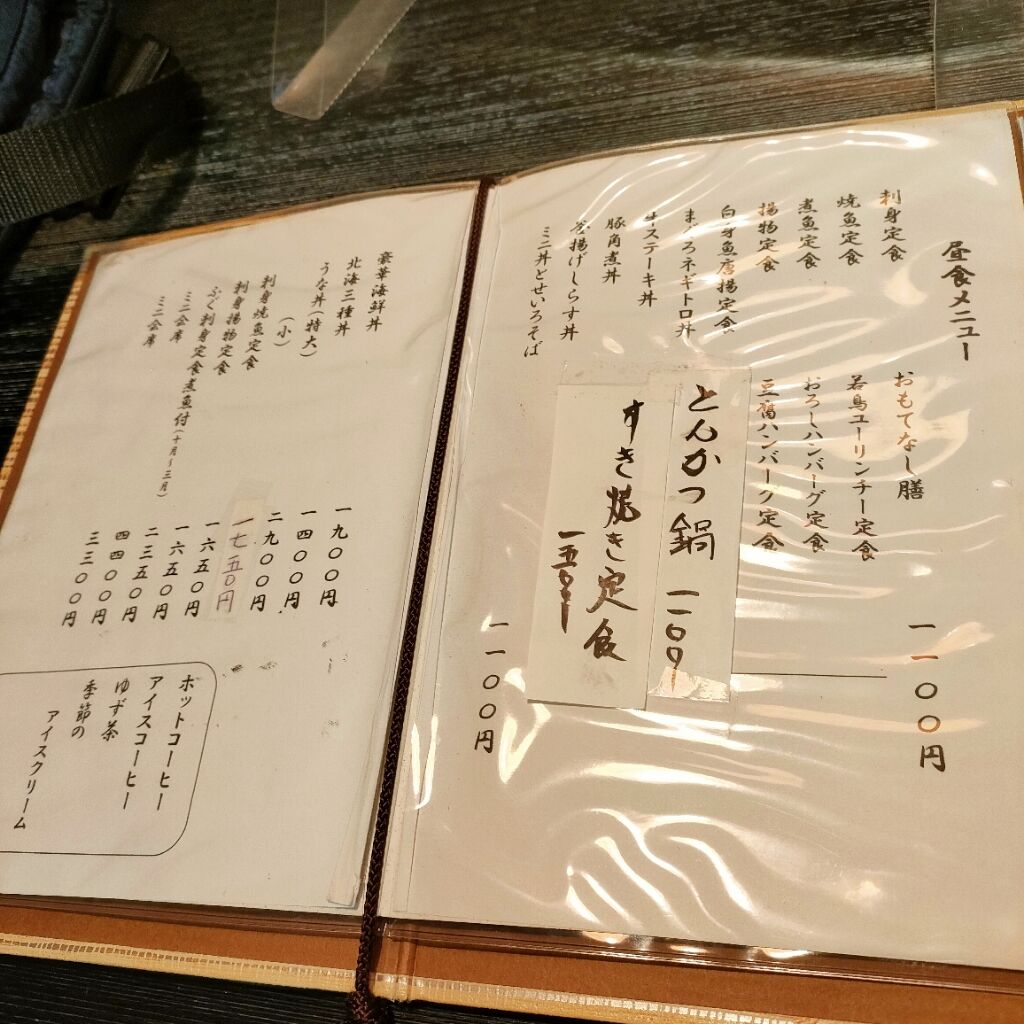 昼食メニュー
刺身定食
焼魚定食
煮魚定食
揚物定食
白身魚唐揚定食
まぐろネギトロ丼
牛ステーキ丼
豚角煮丼
釜揚げしらす丼
ミニ丼とせいろそば
おもてなし膳
若鳥ユーリンチー定食
おろしハンバーグ定食
豆腐ハンバーグ定食
一一〇〇円
とんかつ鍋 一一〇〇
すき焼き定食
一五〇〇
一一〇〇円
豪華海鮮丼
北海三種丼
うな丼(特大)
(小)
刺身焼魚定食
刺身揚物定食
ふぐ刺身定食煮魚付(十月~三月)
ミニ会席
ミニ会席
一九〇〇円
一四〇〇円
二九〇〇円
一七五〇円
一六五〇円
一六五〇円
二三五〇円
四四〇〇円
三三〇〇円
ホットコーヒー
アイスコーヒー
ゆず茶
季節の
アイスクリーム